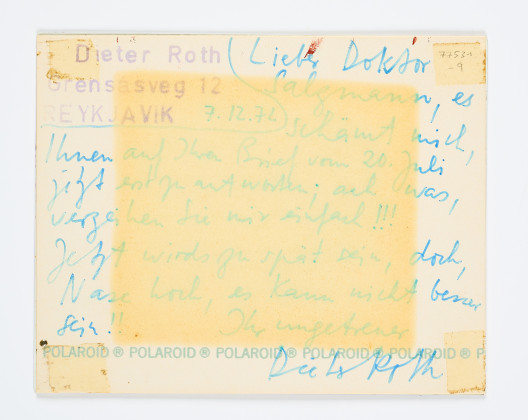 Dieter Roth
Grensasveg 12
REYKJAVIK 7.12.72
77531
-9
Lieber Doktor
Salzmann, es
schämt mich,
Ihnen auf Ihren Brief vom 20. Juli
jetzt erst zu antworten; ach was,
verzeihen Sie mir einfach!!!
Jetzt wirds zu spät sein, doch,
Nase hoch, es kann nicht besser
sein!! Ihr ungetreuer
POLAROID ® POLAROID ® POLAROID ® POLAROID ® POLAROID ® P
Dieter Roth